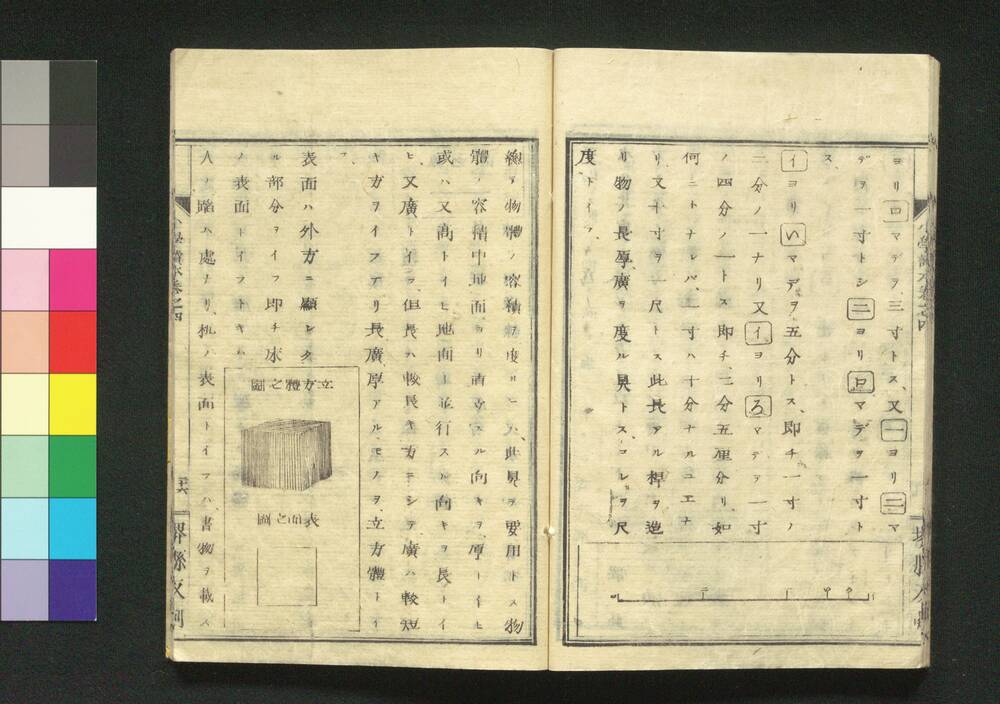 ヨリロマデヲ、三寸トス、又一ヨリ二マ
デヲ一寸トシ二ヨリロマデヲ一寸ト
ス、
イヨリいマデヲ五分トス、即チ一寸ノ
二分ノ一ナリ又イヨリろマデヲ一寸
ノ四分ノ一トス即チ、二分五厘分リ、如
何ニトナレバ、一寸ハ十分ナルユエナ
リ、又十寸ヲ一尺トス此長アル桿ヲ造
リ物ノ長厚廣ヲ度ル具トス、コレヲ尺
度トイフ、
總テ物體ノ容積ヲ度ルニハ、此具ヲ要用トス物
體ノ容積中地面ヨリ直立スル向キヲ、厚トイヒ
或ハ又高トイヒ地面ト並行スル向キヲ長トイ
ヒ、又廣トイフ、但長ハ較長キ方ニシテ、廣ハ較短
キ方ヲイフナリ長廣厚アルモノヲ、立方體トイ
フ、
表面ハ外方ニ顯レタ
ル部分ヲイフ即チ床
ノ表面トイフトキハ
人ノ踏ム處ナリ、机ノ表面トイフハ、書物ヲ載ス
立方體之圖
表面之圖
小學讀本卷之四
十六
堺縣反刻